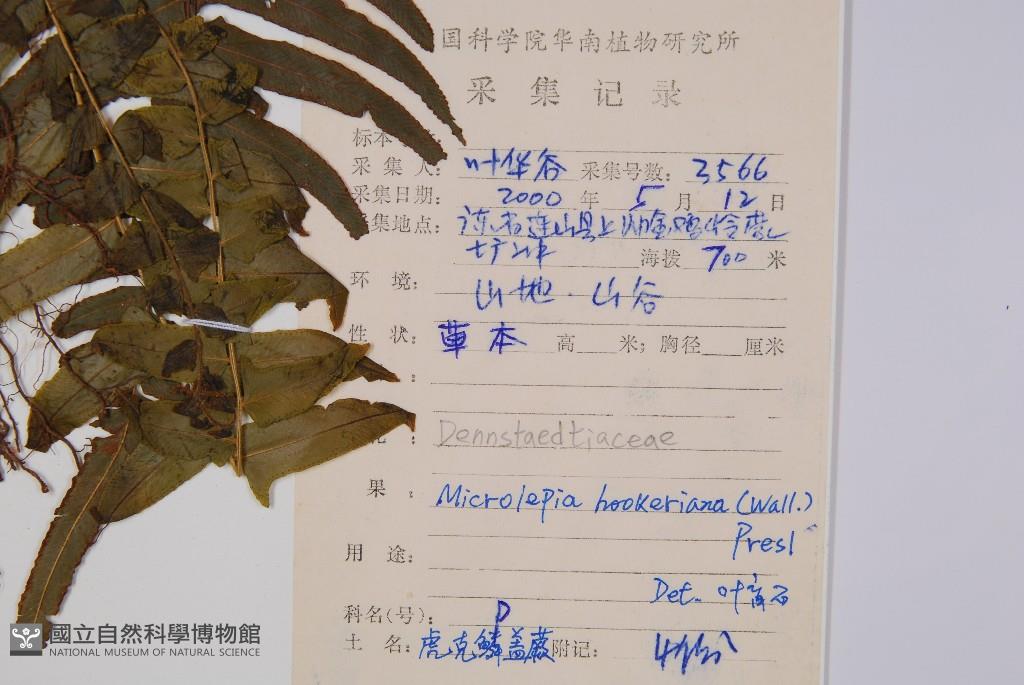 国科学院华南植物研究所
采集记录
标本
采集人: 叶华谷 采集号数: 3566
采集日期: 2000年5月12日
集地点: 东省连山县上
海拔 700 米
环境: 山地·山谷
性状: 草本 高 米; 胸径 厘米
:
: Dennstaedtiaceae
果: Microlepia hookeriana (Wall.)
Presl
用途:
Det. 叶
科名(号): D
土名: 虎克鳞盖蕨 附记: 4份
國立自然科學博物館
NATIONAL MUSEUM OF NATURAL SCIENCE